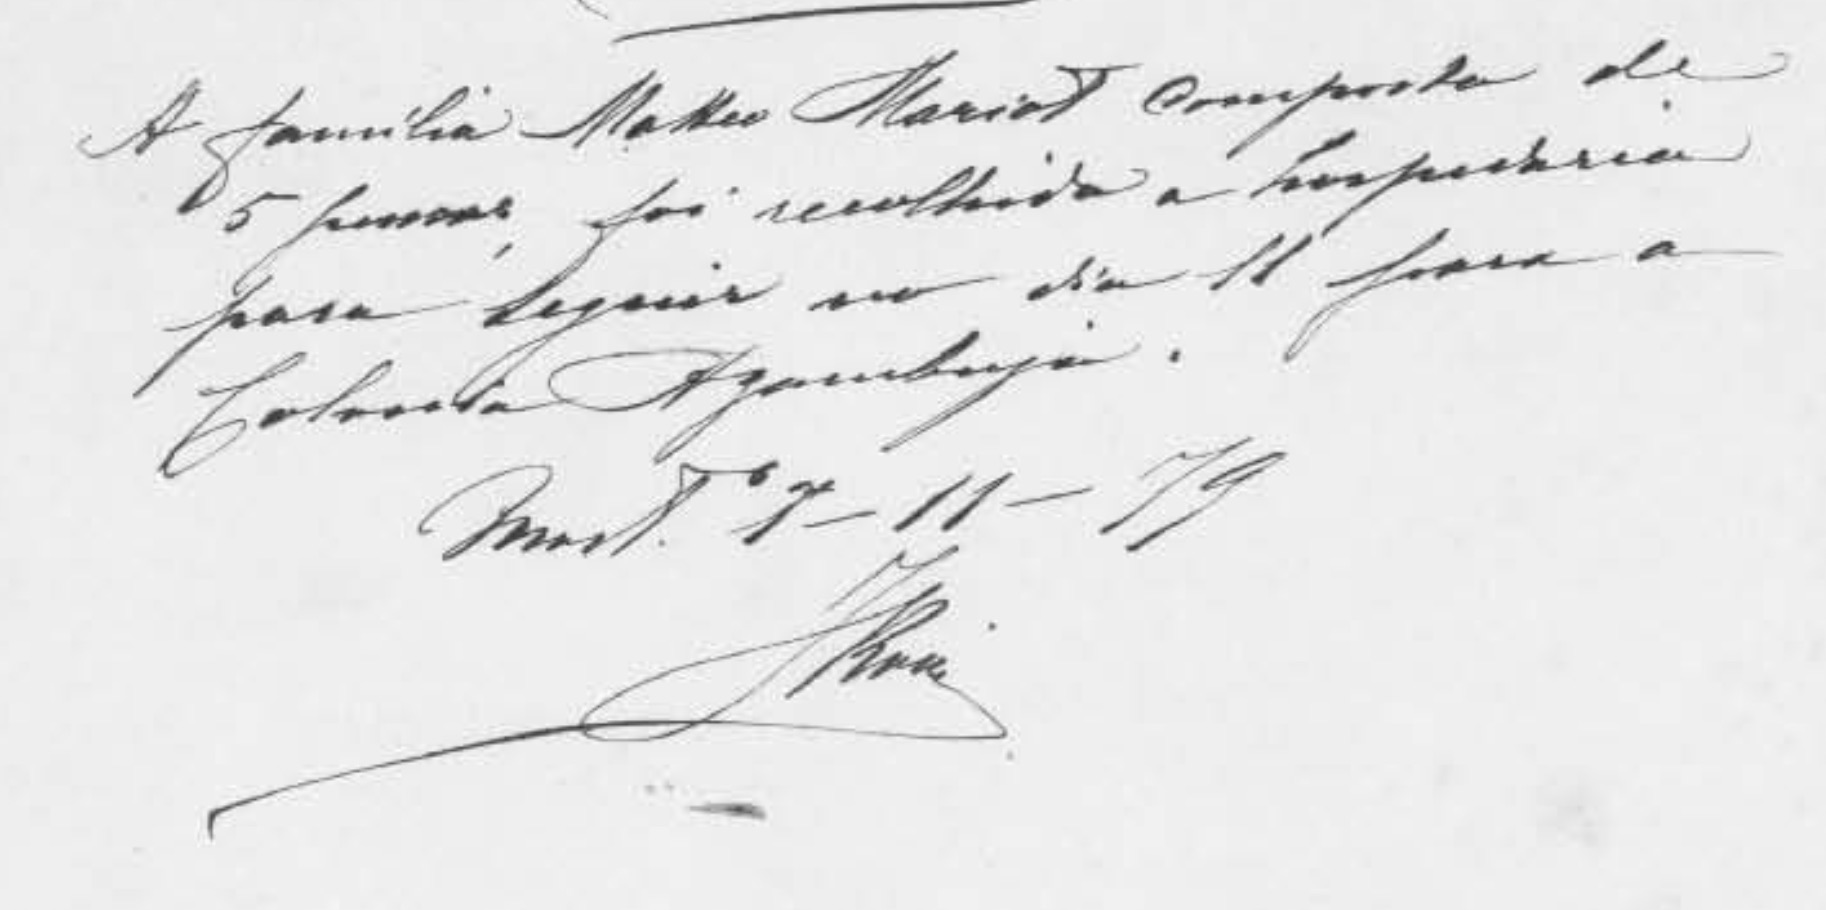 A familia Matteo Mariot composta de
5 pessoas, foi recolhida a hospedaria
para seguir no dia 11 para a
Colonia Azambuja.
7-11-79